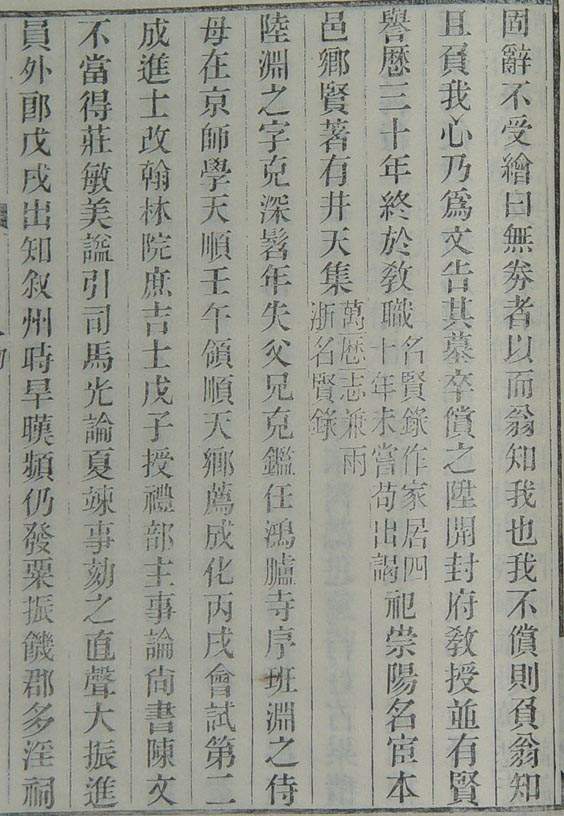 固辭不受繪曰無劵者以而翁知我也我不償則負翁知
且負我心乃爲文告其墓卒償之陞開封府敎授並有賢
譽歷三十年終於敎職名賢錄作家居四十年未嘗苟出謁祀崇陽名宦本
邑鄉賢著有井天集萬歷志兼兩浙名賢錄
陸淵之字克深髫年失父兄克鑑任鴻臚寺序班淵之侍
母在京師學天順壬午領順天鄉薦成化丙戌會試第二
成進士改翰林院庶吉士戊子授禮部主事論尙書陳文
不當得莊敏美諡引司馬光論夏竦事劾之直聲大振進
員外郎戊戌出知叙州時旱暵頻仍發粟振饑郡多淫祠